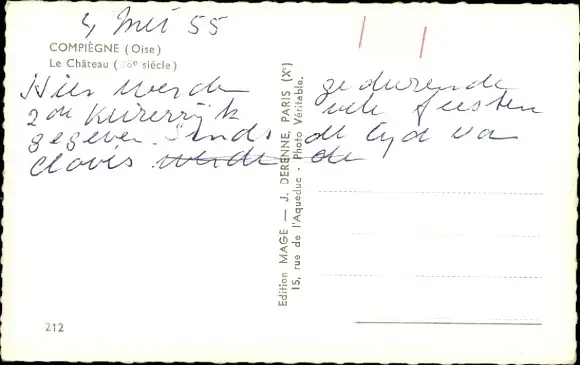 4 Mei 55
COMPIÈGNE (Oise)
Le Château (18e siècle)
Hier werden gedurende
2de Keizerrijk vele feesten
gegeven. Sinds de tijd van
Clovis werden de
Edition MAGE — J. DERENNE, PARIS (Xe)
15, rue de l'Aqueduc - Photo Véritable.
212